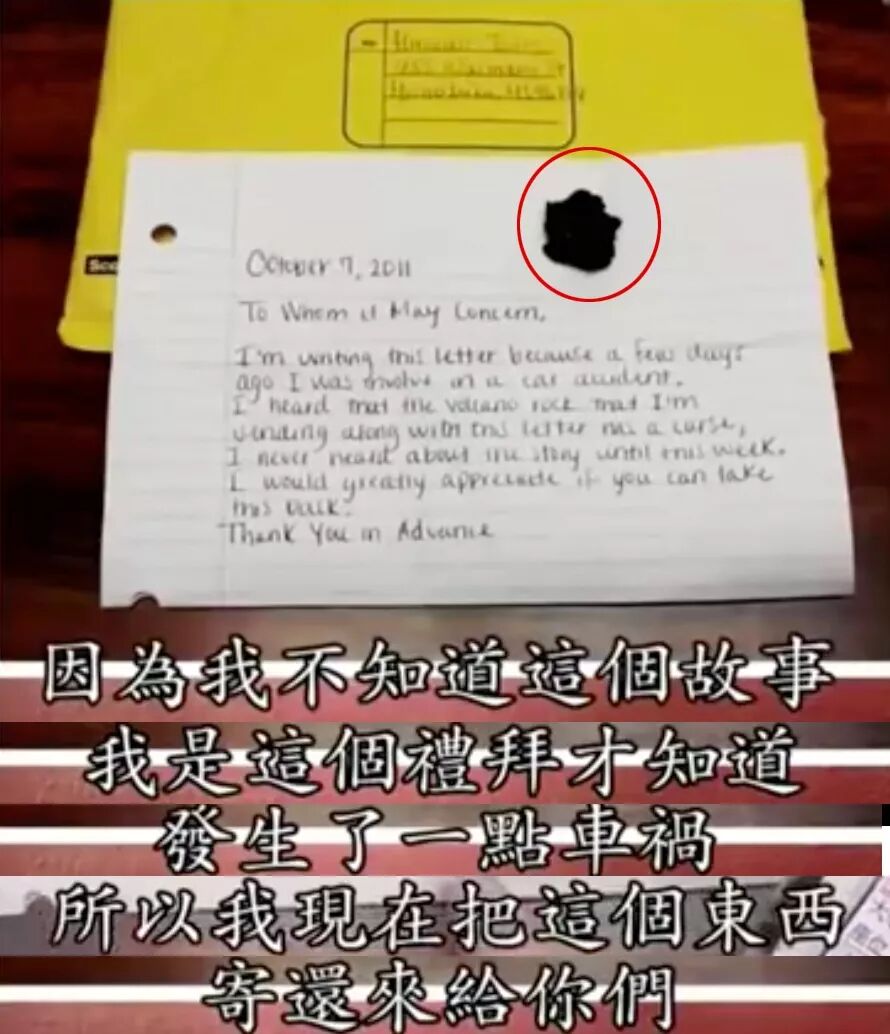 October 7, 2011
To Whom it May Concern,
I'm writing this letter because a few days
ago I was involve in a car accident.
I heard that the volcano rock that I'm
sending along with this letter has a curse,
I never heard about the story until this week.
I would greatly appreciate if you can take
this back.
Thank You in Advance
因為我不知道這個故事
我是這個禮拜才知道
發生了一點車禍
所以我現在把這個東西
寄還來給你們